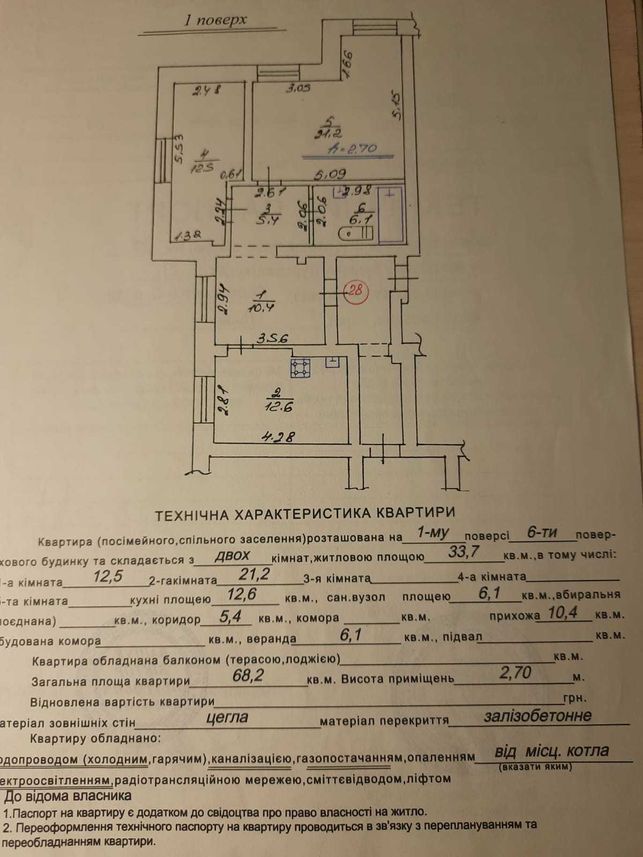 1 поверх
1.66
2.48
3.05
5.15
5
21.2
h=2.70
5.53
4
12.5
0.61
5.09
2.61
2.98
2.24
3
5.4
2.06
2.06
6
6.1
1.38
28
2.94
1
10.4
3.56
2.81
2
12.6
4.28
ТЕХНІЧНА ХАРАКТЕРИСТИКА КВАРТИРИ
Квартира (посімейного,спільного заселення)розташована на 1-му поверсі 6-ти повер-
хового будинку та складається з двох кімнат,житловою площею 33,7 кв.м.,в тому числі:
1-а кімната 12,5 2-гакімната 21,2 3-я кімната 4-а кімната
5-та кімната кухні площею 12,6 кв.м., сан.вузол площею 6,1 кв.м.,вбиральня
поєднана) кв.м., коридор 5,4 кв.м., комора кв.м. прихожа 10,4 кв.м.
будована комора кв.м., веранда 6,1 кв.м., підвал кв.м.
Квартира обладнана балконом (терасою,лоджією) кв.м.
Загальна площа квартири 68,2 кв.м. Висота приміщень 2,70 м.
Відновлена вартість квартири грн.
матеріал зовнішніх стін цегла матеріал перекриття залізобетонне
Квартиру обладнано:
водопроводом (холодним,гарячим),каналізацією,газопостачанням,опаленням від місц. котла
(вказати яким)
електроосвітленням,радіотрансляційною мережею,сміттєвідводом,ліфтом
До відома власника
1.Паспорт на квартиру є додатком до свідоцтва про право власності на житло.
2. Переоформлення технічного паспорту на квартиру проводиться в зв'язку з переплануванням та
переобладнанням квартири.